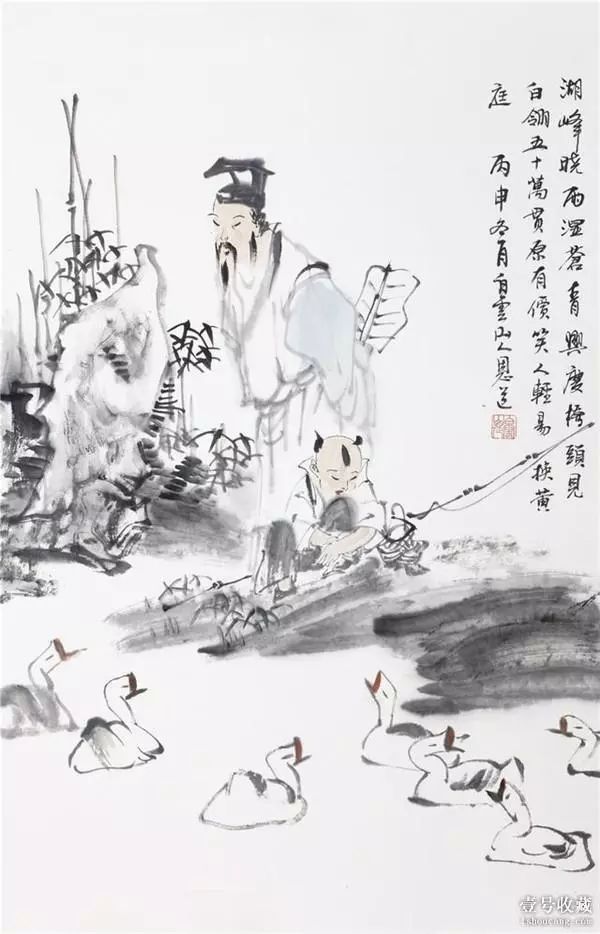 湖峰曉雨溼蒼青興度橋頭見
白翎五十萬貫原有價笑人輕易換黃
庭 丙申冬月白雲山人恩道
壹号收藏
1shoucang.com